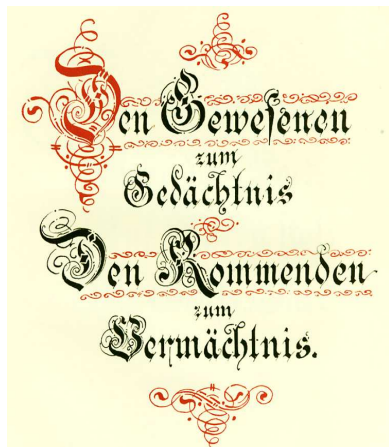 Den Gewesenen
zum
Gedächtnis
Den Kommenden
zum
Vermächtnis.